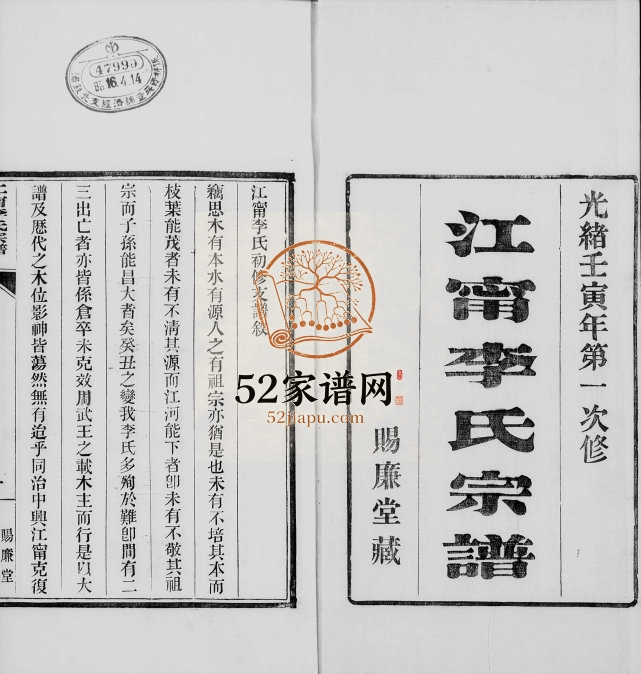 光緒壬寅年第一次修
江甯李氏宗譜
賜廉堂藏
47990
昭16.4.14
江甯李氏初修支譜敘
竊思木有本水有源人之有祖宗亦猶是也未有不培其本而
枝葉能茂者未有不淸其源而江河能下者卽未有不敬其祖
宗而子孫能昌大者矣癸丑之變我李氏多殉於難卽間有一二
三出亡者亦皆係倉卒未克效周武王之載木主而行是以大
譜及歷代之木位影神皆蕩然無有迨乎同治中興江甯克復
賜廉堂
52家谱网
52jiapu.com